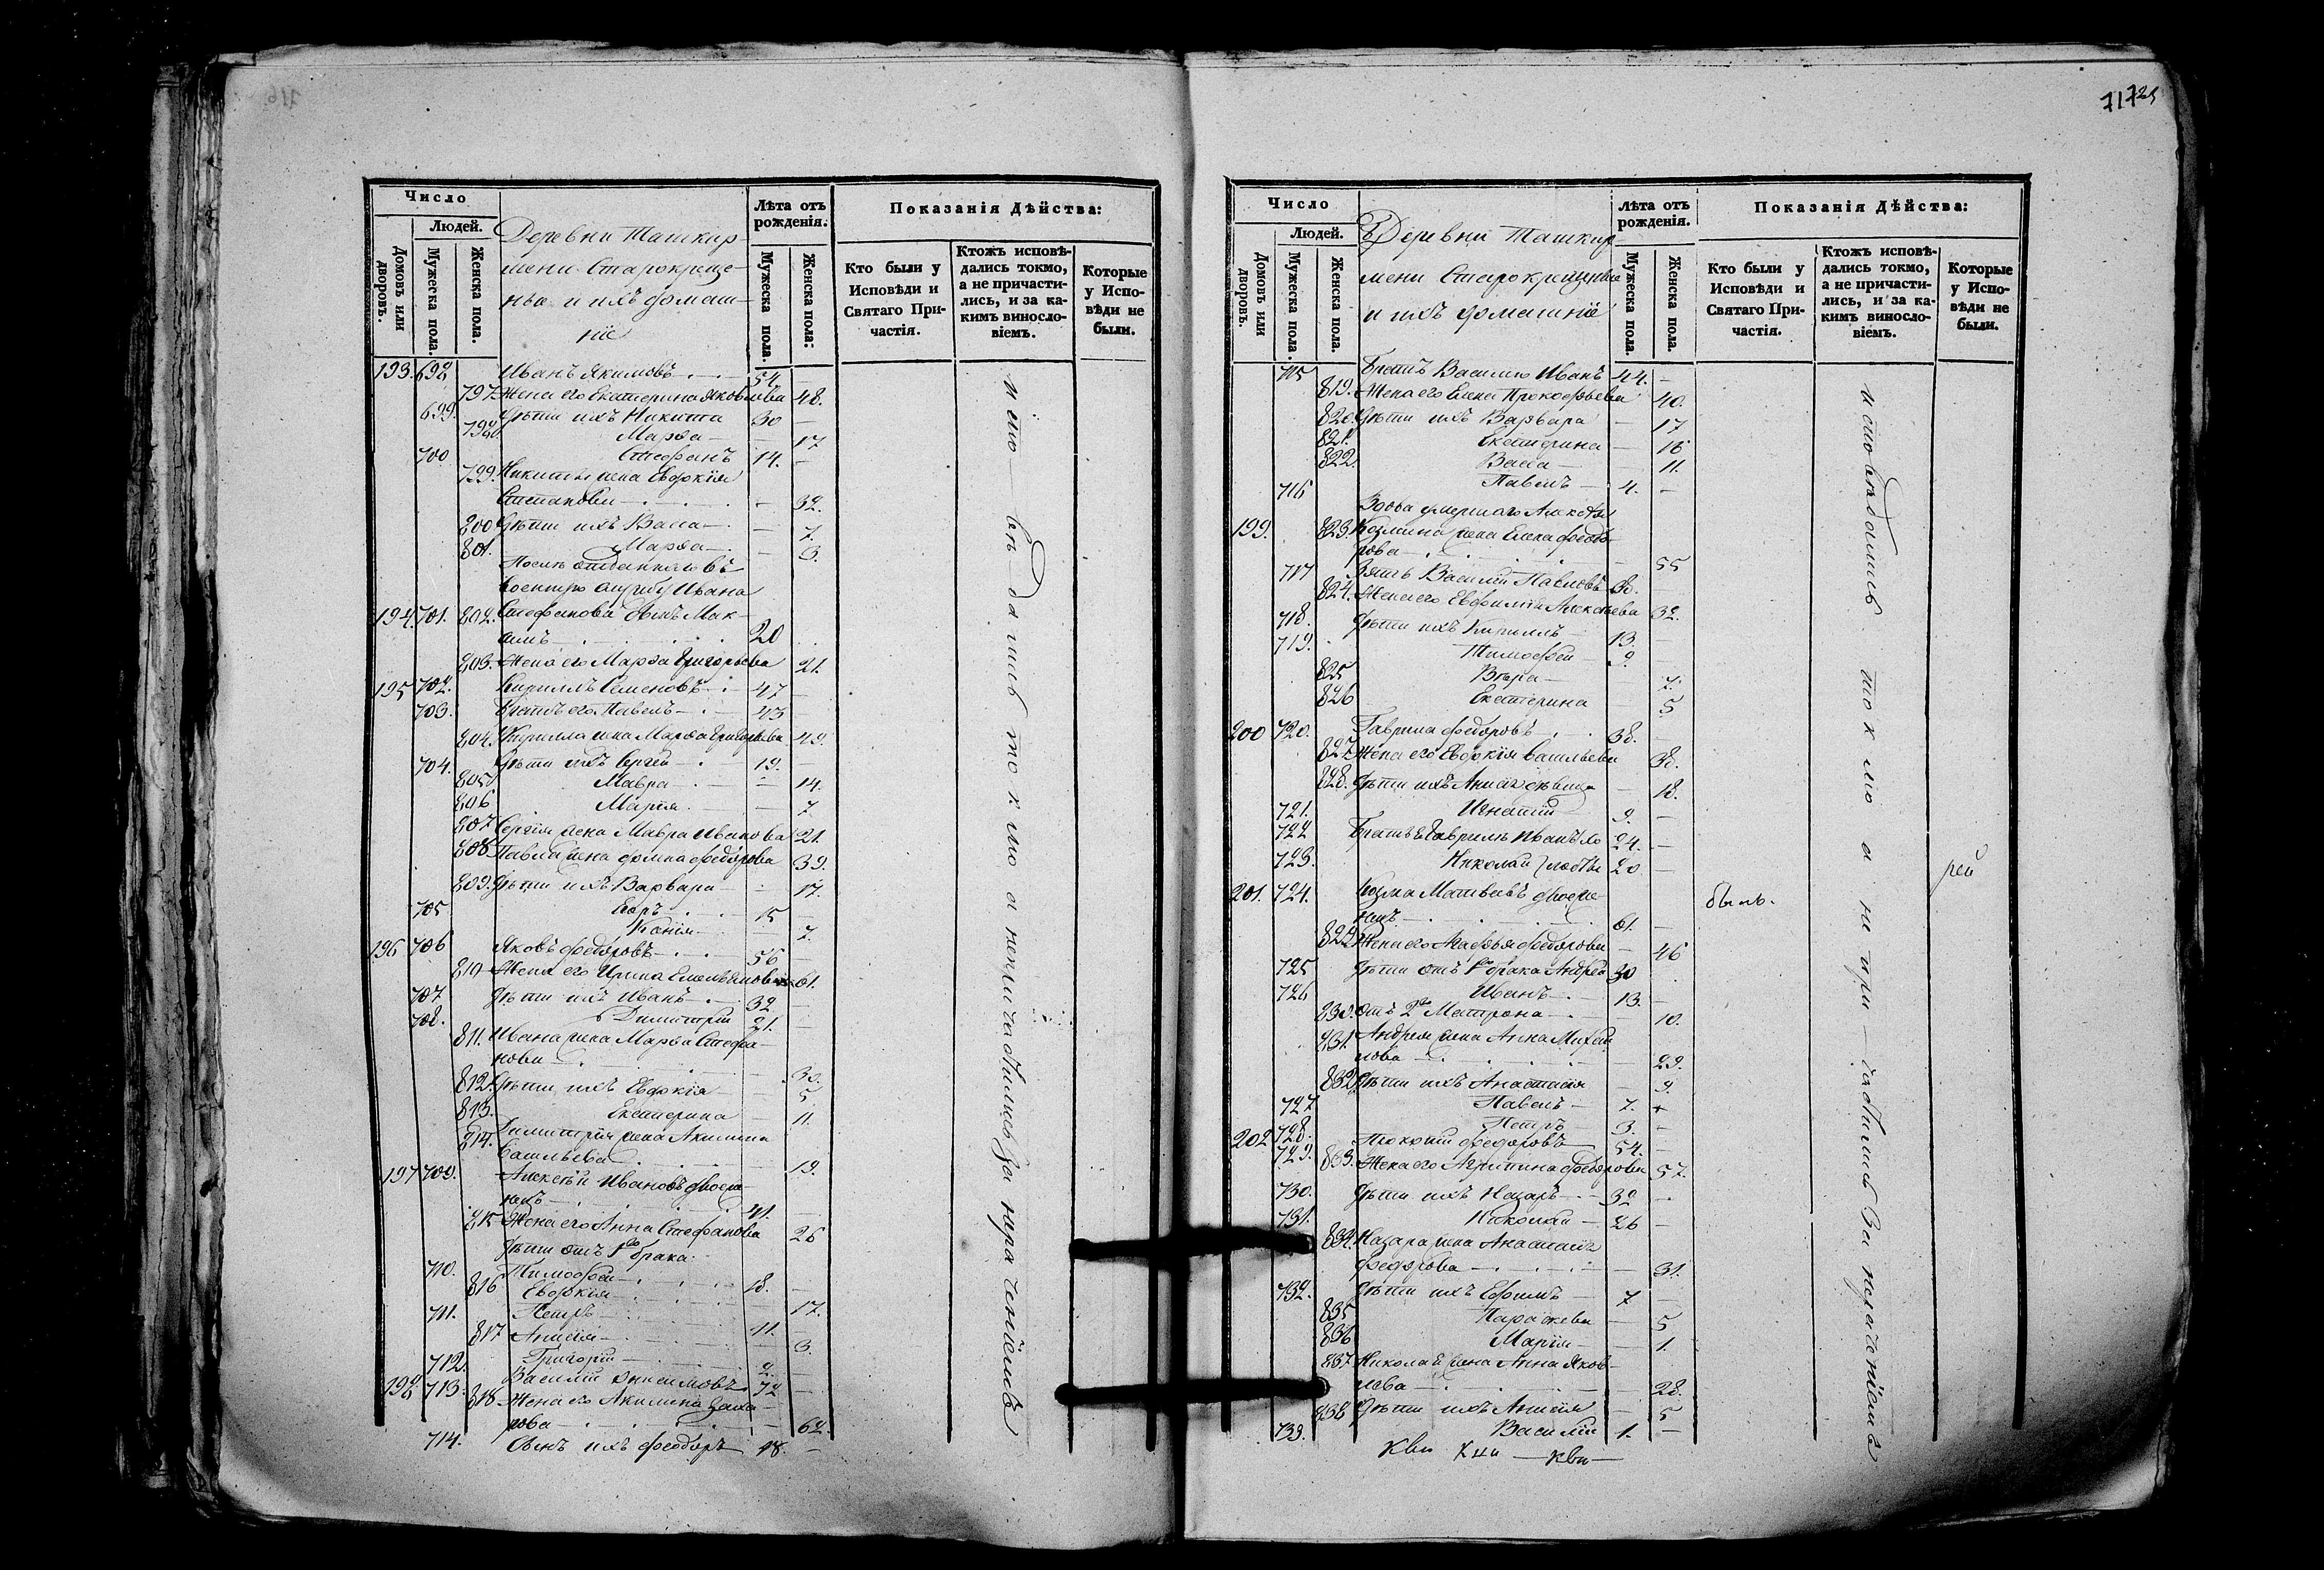 71 725
Число
Людей.
Домовъ или дворовъ.
Мужеска пола.
Женска пола.
Деревни Ташкир-
мени Старокреще-
ны и ихъ домаш-
ніе
Лѣта отъ рожденія.
Мужеска пола.
Женска пола:
Показанія Дѣйства:
Кто были у Исповѣди и Святаго При-частія.
Ктожъ исповѣ-дались токмо, а не причасти-лись, и за ка-кимъ винослo-віемъ.
Которые у Испо-вѣди не были.
193. 698 Иванъ Якимовъ 54. —
797 Жена его Екатерина Яковлева 48.
699. Дѣти ихъ Никита 30 —
798. Марѳа — 17
700 Стефанъ 14. —
799. Никиты жена Евдокія
Степанова — 32.
800 Дѣти ихъ Васса — 7.
801. Марѳа — 3.
Послѣ отданнаго въ
военную службу Ивана
194. 701. 802. Стефанова сынъ Мак-
симъ 20
803. Жена его Марѳа Григорьева 21.
195 702. Кириллъ Семеновъ 47 —
703. Братъ его Павелъ 43 —
804. Кирилла жена Марѳа Григорьева 49.
704. Дѣти ихъ Сергій 19. —
805 Мавра — 14.
806 Марія — 7
807 Сергія жена Мавра Иванова 21.
808 Павла жена Домна Ѳедорова 39.
809. Дѣти ихъ Варвара — 17.
705 Егоръ 15 —
Ксенія — 7.
196 706 Яковъ Ѳедоровъ 56 —
810 Жена его Ирина Емельянова 61.
707 Дѣти ихъ Иванъ 32 —
708. Димитрій 21. —
811. Ивана жена Марѳа Стефа-
нова — 30.
812. Дѣти ихъ Евдокія — 5
813. Екатерина — 11.
814. Димитрія жена Акилина
Васильева — 19.
197 709. Алексѣй Ивановъ двоеже-
нецъ 41. —
815 Жена его Анна Стефанова 26
Дѣти отъ 1го брака.
710. Тимофей 18. —
816 Евдокія — 17.
711. Петръ 11. —
817 Анисія — 3.
712. Григорій 2. —
198 713. Василій Онисимовъ 72 —
818 Жена его Акилина Заха-
рова — 62.
714. Сынъ ихъ Ѳеодоръ 18. —
исповѣдались токмо а не причастились за нераченіемъ
Число
Людей.
Домовъ или дворовъ.
Мужеска пола.
Женска пола.
Деревни Ташкир-
мени Старокрещены
и ихъ домашніе
Лѣта отъ рожденія.
Мужеска пола.
Женска пола.
Показанія Дѣйства:
Кто были у Исповѣди и Святаго При-частія.
Ктожъ исповѣ-дались токмо, а не причасти-лись, и за ка-кимъ винослo-віемъ.
Которые у Испо-вѣди не были.
715 Братъ Василію Иванъ 44. —
819. Жена его Елена Прокофьева 40.
820. Дѣти ихъ Варвара — 17
821. Екатерина — 16
822. Васса — 11.
716 Павелъ 4. —
Вдова умершаго Алексѣя
199. 823. Козмина жена Елена Ѳедо-
рова — 55
717 Зять Василій Павловъ 38. —
824. Жена его Евфимія Алексѣева 32.
718. Дѣти ихъ Кириллъ 13. —
719. Тимофей 9. —
825 Вѣра — 7.
826 Екатерина — 5
200 720. Гаврила Ѳедоровъ 38. —
827 Жена его Евдокія Васильева 38.
828. Дѣти ихъ Анисія дѣвица — 18.
721. Игнатій 9. —
722 Братья Гаврилѣ Иванъ хо 24. —
723. Николай лосты 20 —
201. 724. Козма Матвеевъ двоеже-
нецъ 61. — былъ.
829 Жена его Агафья Ѳедорова — 46
725 Дѣти отъ 1го брака Андрей 30
726 Иванъ 13. —
830. отъ 2го Матрона — 10.
831. Андрея жена Анна Михай-
лова — 29.
832 Дѣти ихъ Анастасія — 9.
727 Павелъ 7. —
728. Петръ 3. —
202 729. Прокопій Ѳедоровъ 54. —
833. Жена его Агрипина Ѳедорова 57.
730. Дѣти ихъ Назаръ 32 —
731. Николай 26 —
834. Назара жена Анастасія
Ѳедорова — 31.
732. Дѣти ихъ Ефимъ 7 —
835 Параскева — 5
836 Марія — 1.
837. Николая жена Анна Яков-
лева — 28.
838 Дѣти ихъ Анисія — 5
733. Василій 1. —
исповѣдались токмо а не причастились за нераченіемъ
рей